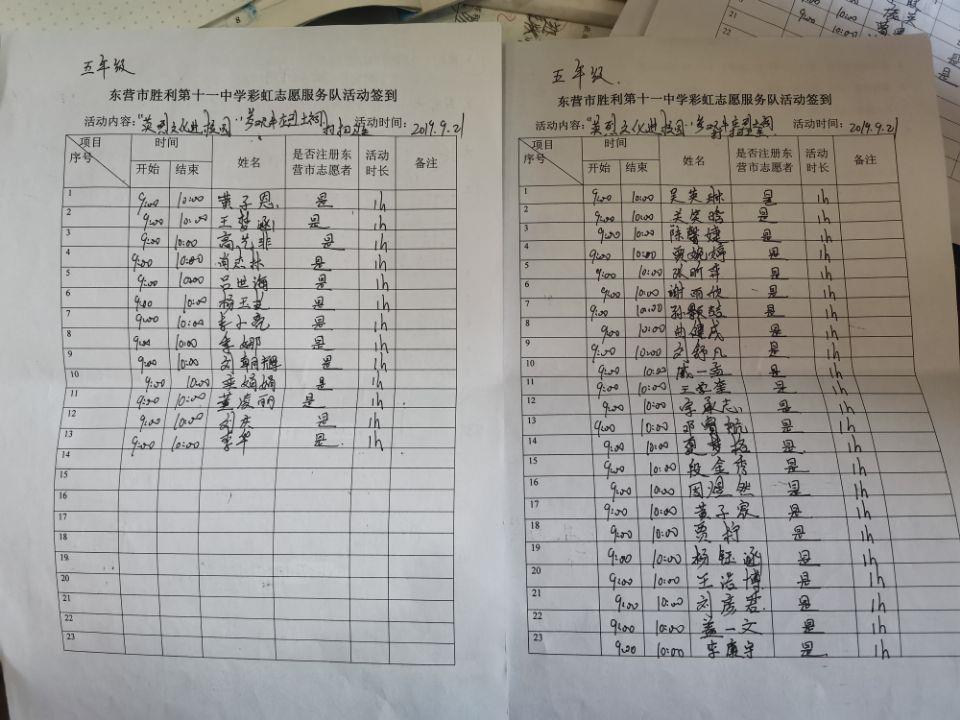 五年级
东营市胜利第十一中学彩虹志愿服务队活动签到
活动内容："英烈文化进校园" 活动时间：2019.9.21
项目 时间 姓名 是否注册东营市志愿者 活动时长 备注
序号 开始 结束
1 9:00 10:00 黄子恩 是 1h
2 9:00 10:00 王梦涵 是 1h
3 9:00 10:00 高艺菲 是 1h
4 9:00 10:00 尚杰林 是 1h
5 9:00 10:00 吕世海 是 1h
6 9:00 10:00 杨玉 是 1h
7 9:00 10:00 是 1h
8 9:00 10:00 李娜 是 1h
9 9:00 10:00 刘朝辉 是 1h
10 9:00 10:00 娟娟 是 1h
11 9:00 10:00 董凌丽 是 1h
12 9:00 10:00 刘庆 是 1h
13 9:00 10:00 李华 是 1h
14
15
16
17
18
19
20
21
22
23
五年级
东营市胜利第十一中学彩虹志愿服务队活动签到
活动内容："英烈文化进校园" 活动时间：2019.9.21
项目 时间 姓名 是否注册东营市志愿者 活动时长 备注
序号 开始 结束
1 9:00 10:00 吴英琳 是 1h
2 9:00 10:00 关笑晗 是 1h
3 9:00 10:00 陈馨婕 是 1h
4 9:00 10:00 贾婉婷 是 1h
5 9:00 10:00 张昕 是 1h
6 9:00 10:00 谢雨欣 是 1h
7 9:00 10:00 孙颢喆 是 1h
8 9:00 10:00 曲健成 是 1h
9 9:00 10:00 刘舒凡 是 1h
10 9:00 10:00 戚一 是 1h
11 9:00 10:00 王奎 是 1h
12 9:00 10:00 李承志 是 1h
13 9:00 10:00 邓航 是 1h
14 9:00 10:00 夏梦 是 1h
15 9:00 10:00 段金秀 是 1h
16 9:00 10:00 周煜然 是 1h
17 9:00 10:00 黄子宸 是 1h
18 9:00 10:00 贾柠 是 1h
19 9:00 10:00 杨钰涵 是 1h
20 9:00 10:00 王浩博 是 1h
21 9:00 10:00 刘彦君 是 1h
22 9:00 10:00 盖一文 是 1h
23 9:00 10:00 李康宇 是 1h